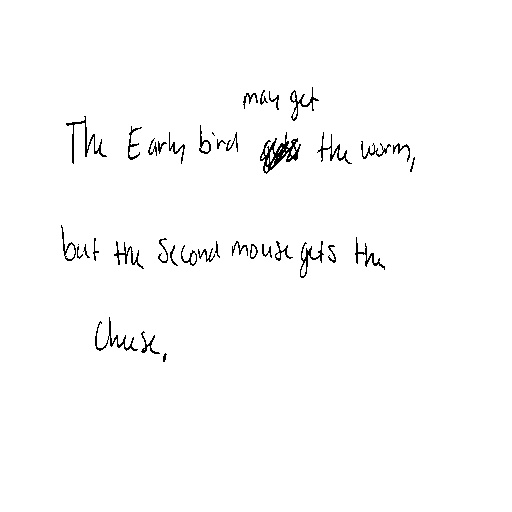 The Early bird may get the worm,
but the second mouse gets the
cheese,